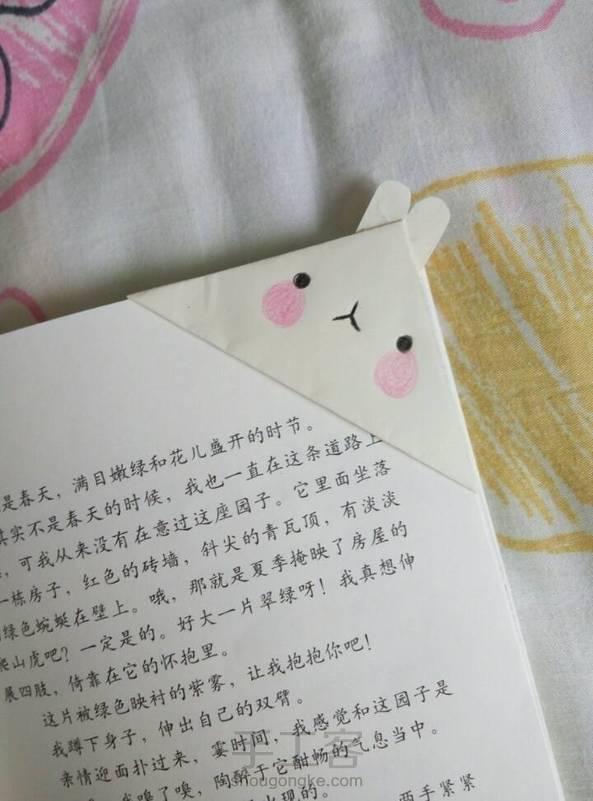 是春天，满目嫩绿和花儿盛开的时节。
其实不是春天的时候，我也一直在这条道路上
，可我从来没有在意过这座园子。它里面坐落
一栋房子，红色的砖墙，斜尖的青瓦顶，有淡淡
绿色蜿蜒在壁上。哦，那就是夏季掩映了房屋的
爬山虎吧？一定是的。好大一片翠绿呀！我真想伸
展四肢，倚靠在它的怀抱里。
这片被绿色映衬的紫雾，让我抱抱你吧！
我蹲下身子，伸出自己的双臂。
亲情迎面扑过来，霎时间，我感觉和这园子是
我嗅了嗅，陶醉于它酣畅的气息当中。
出现的。
两手紧紧
手工客
shougongke.com